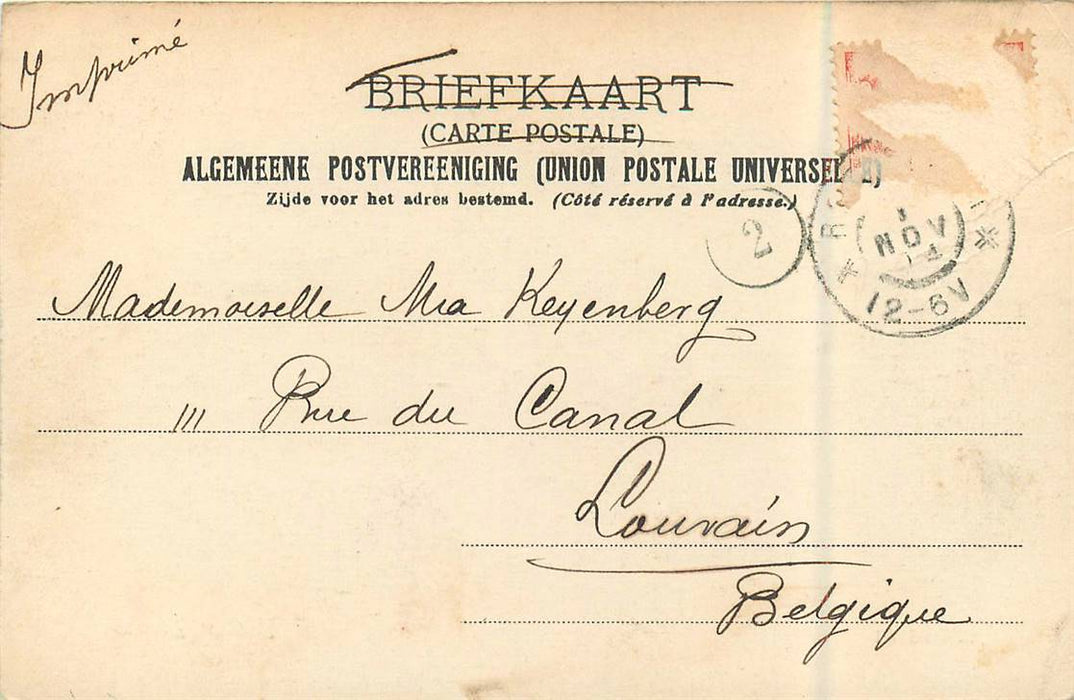 Imprimé
BRIEFKAART
(CARTE POSTALE)
ALGEMEENE POSTVEREENIGING (UNION POSTALE UNIVERSELLE)
Zijde voor het adres bestemd. (Côté réservé à l'adresse.)
2
NOV
12-6V
Mademoiselle Mia Keyenberg
111 Rue du Canal
Louvain
Belgique